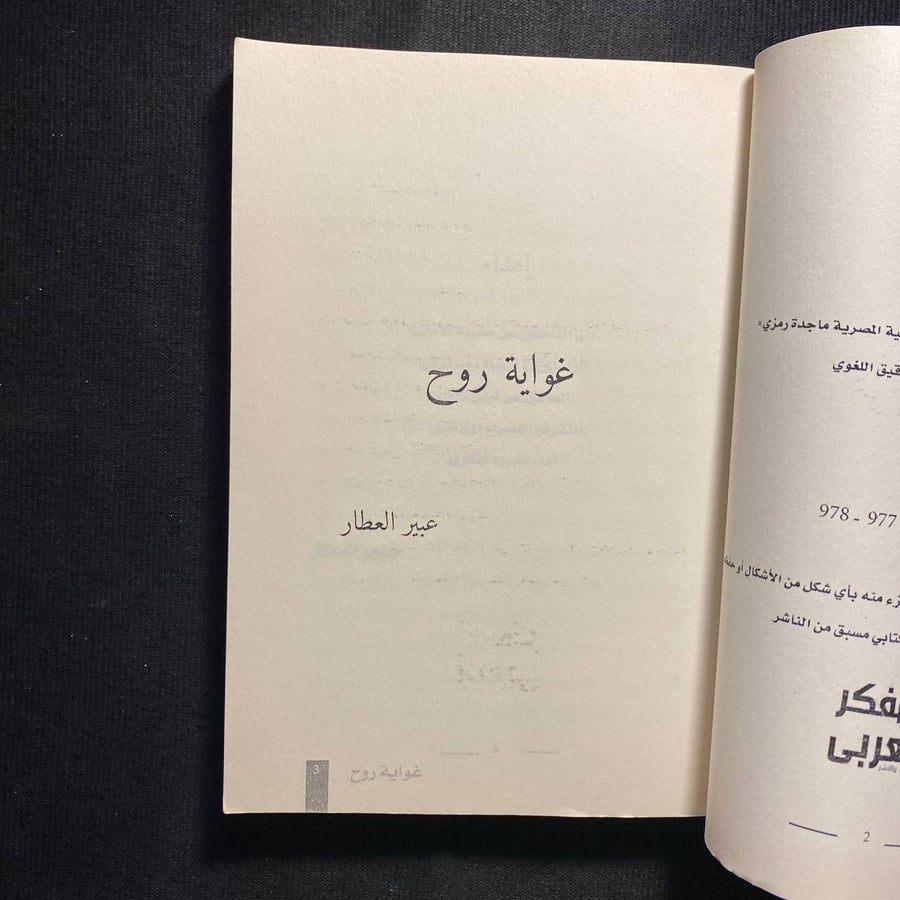 ية المصرية ماجدة رمزي
قيق اللغوي
978 - 977
زء منه بأي شكل من الأشكال أو
تابي مسبق من الناشر
مفكر
عربى
2
غواية روح
عبير العطار
غواية روح
3